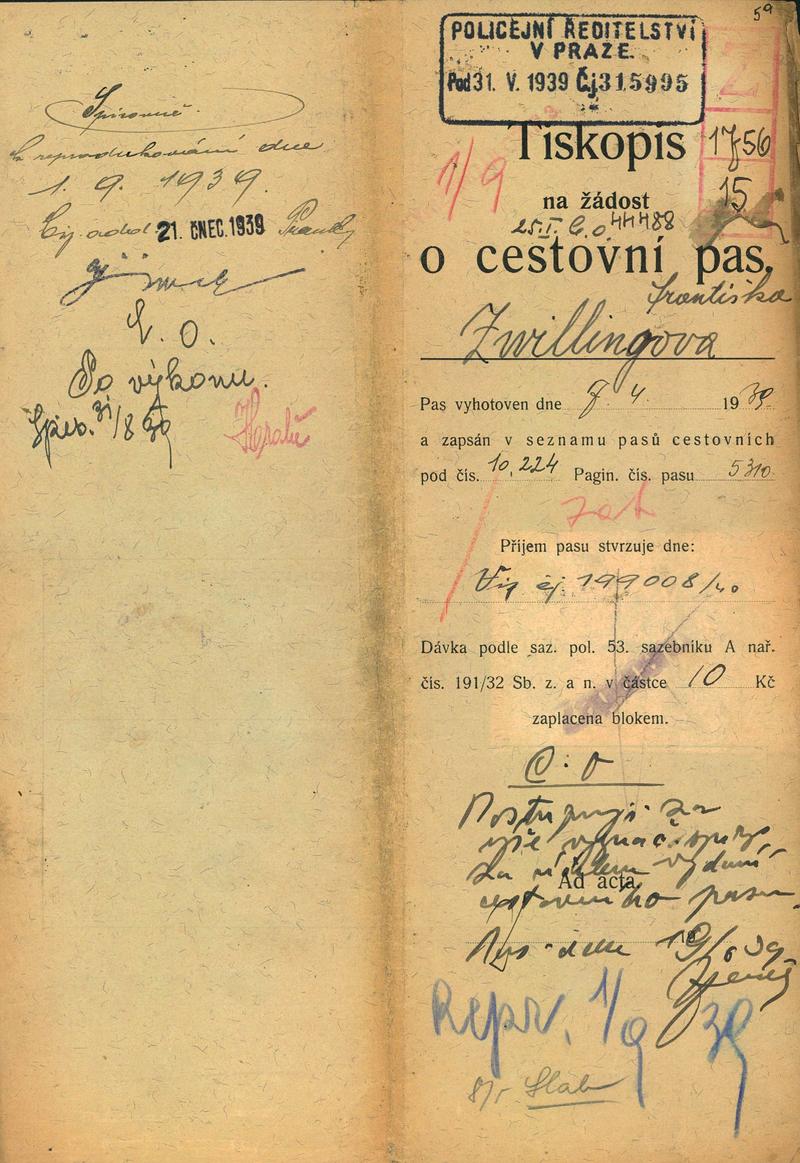 Spisovně
k reprodukování dne
1. 9. 1939.
21. ČNEC. 1939
E. O.
Po výkonu.
31/8 39
59
POLICEJNÍ ŘEDITELSTVÍ
V PRAZE.
Pod 31. V. 1939 Čj 315995
Tiskopis
1756
1/9
na žádost
15
44488
o cestovní pas.
Františka
Zwillingova
Pas vyhotoven dne 7. 4. 1939
a zapsán v seznamu pasů cestovních
pod čís. 10,224 Pagin. čís. pasu 5310
Příjem pasu stvrzuje dne:
Viz čj. 199008/40
Dávka podle saz. pol. 53. sazebníku A nař.
čís. 191/32 Sb. z. a n. v částce 10 Kč
zaplacena blokem.
C. O
Postupuji za
výše vyznač.
za účelem vydání
Ad acta.
cestovního pasu.
dne
Repr. 1/9 39
Slab